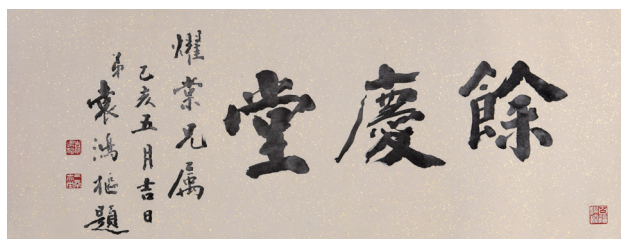 餘慶堂
燿棠兄屬
乙亥五月吉日
弟袁鴻樞題